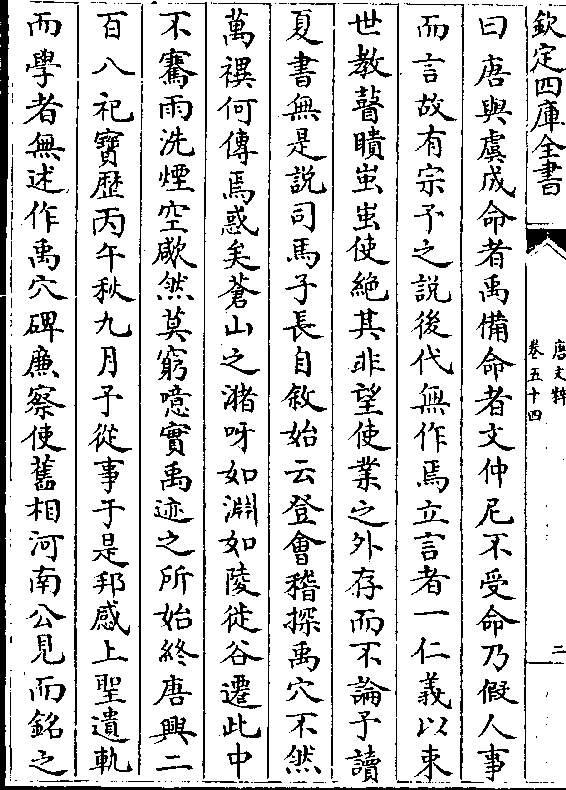 欽定四庫全書
唐文粹
卷五十四
二
曰唐與虞成命者禹備命者文仲尼不受命乃假人事
而言故有宗予之説後代無作焉立言者一仁義以東
世教瞽瞶蚩蚩使絶其非望使業之外存而不論予讀
夏書無是説司馬子長自敘始云登會稽探禹穴不然
萬禩何傳焉惑矣蒼山之潴呀如淵如陵徙谷遷此中
不騫雨洗煙空歘然莫窮噫實禹迹之所始終唐興二
百八祀寶歴丙午秋九月予從事于是邦感上聖遺軌
而學者無述作禹穴碑廉察使舊相河南公見而銘之